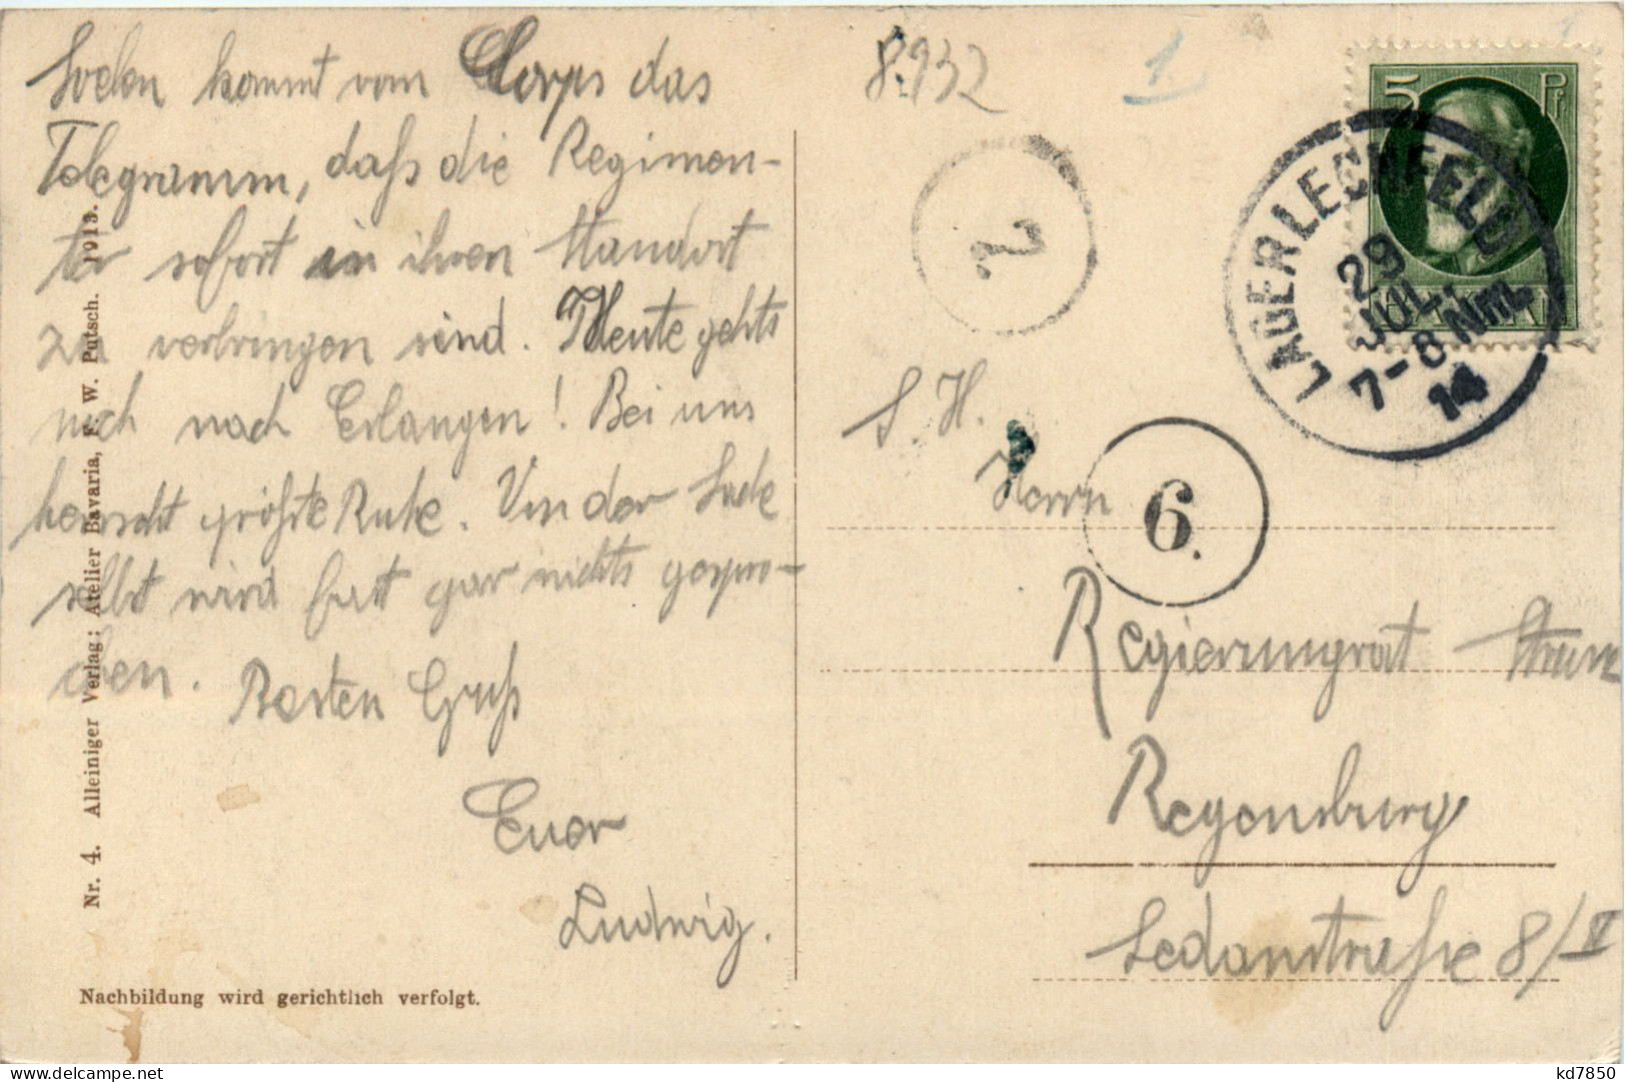 Soeben kommt vom Corps das
Telegramm, daß die Regimen-
ter sofort in ihren Standort
zu verbringen sind. Heute gehts
noch nach Erlangen! Bei uns
herrscht größte Ruhe. Von der Sache
selbst wird fast gar nichts gespro-
chen. Besten Gruß
Euer
Ludwig.
Nr. 4. Alleiniger Verlag: Atelier Bavaria, F. W. Putsch. 1913.
Nachbildung wird gerichtlich verfolgt.
8.932
1.
5 Pf
BAYERN
LAGERLECHFELD
29
JUL.
7-8 Nm.
14
2.
6.
S. H.
Herrn
Regierungsrat
Regensburg
Sedanstraße 8/II
kd7850